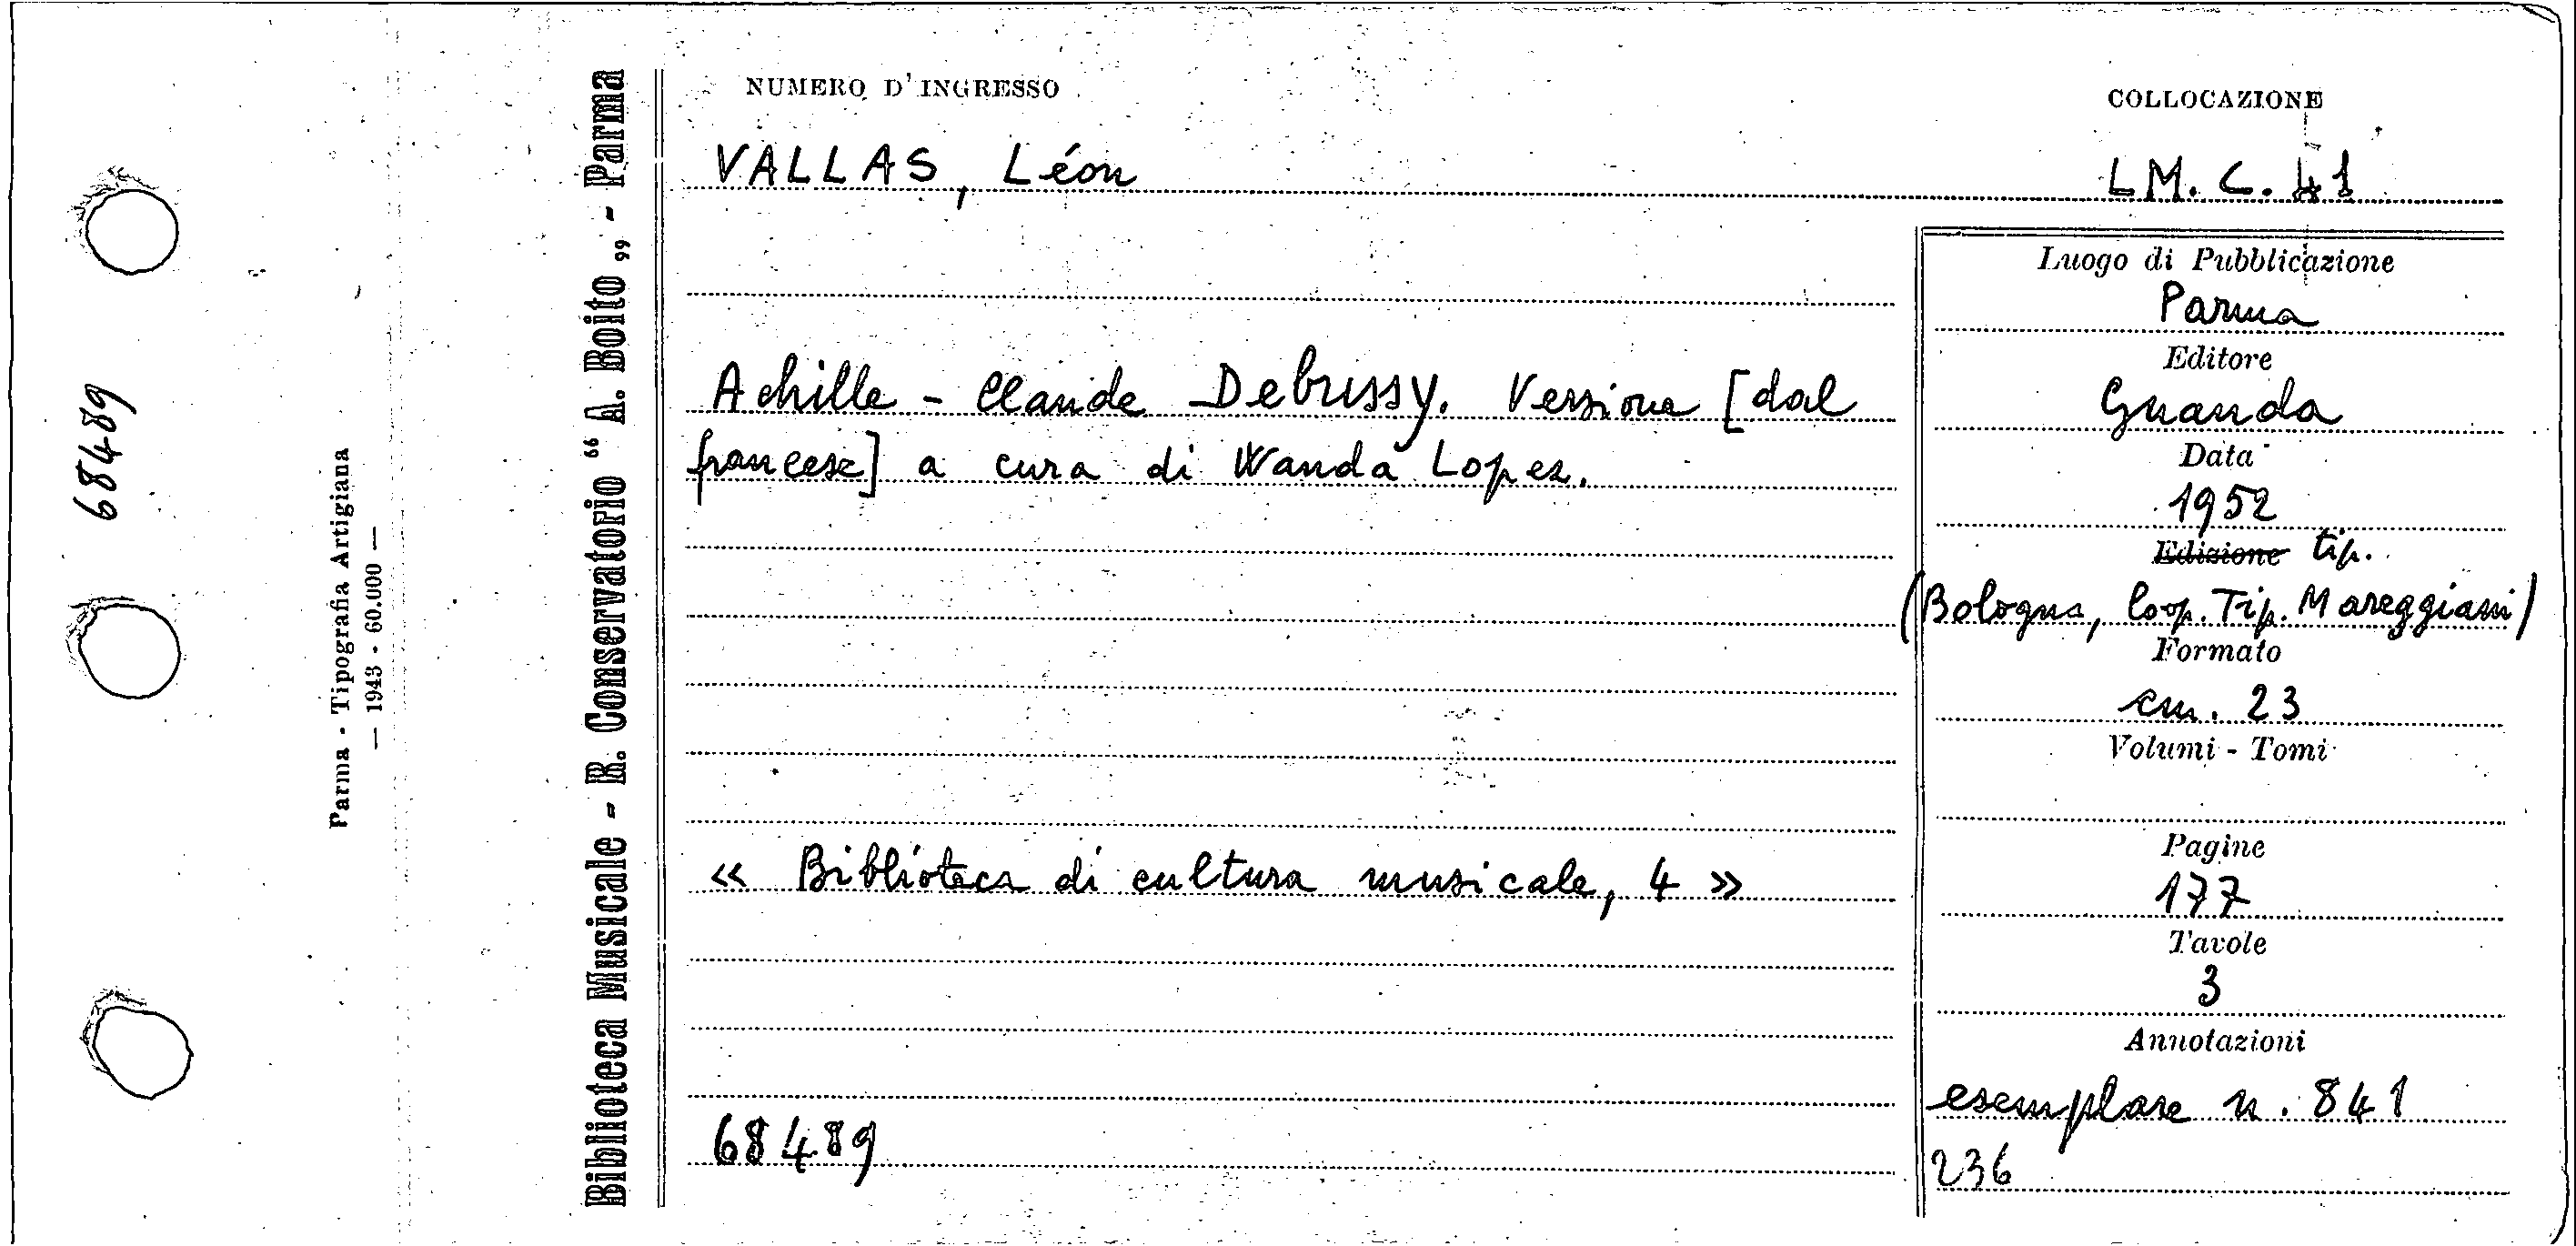 68489
Parma - Tipografia Artigiana
— 1943 - 60.000 —
Biblioteca Musicale - R. Conservatorio “ A. Boito „ - Parma
NUMERO D'INGRESSO
COLLOCAZIONE
VALLAS, Léon
LM. C. 41
Achille - Claude Debussy. Versione [dal
francese] a cura di Wanda Lopez.
« Biblioteca di cultura musicale, 4 »
68489
Luogo di Pubblicazione
Parma
Editore
Guanda
Data
1952
Edizione tip.
(Bologna, Coop. Tip. Mareggiani)
Formato
cm. 23
Volumi - Tomi
Pagine
177
Tavole
3
Annotazioni
esemplare n. 841
236